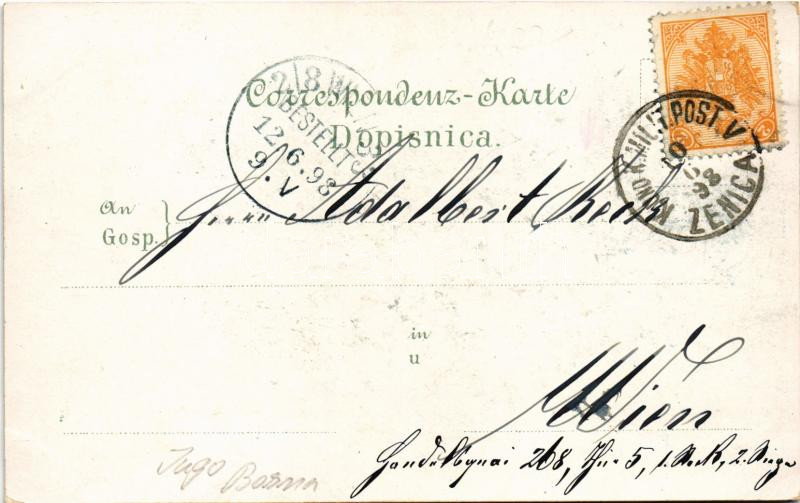 Correspondenz-Karte
Dopisnica.
2/8 WIEN
BESTELLT
12.6.98
9.V
K.UND K.MILIT.POST V
10
6
98
ZENICA
An
Gosp.
Herrn Adalbert
in
u
Wien
268, Thür 5, 1. Stock, 2. Stiege
Jugo Bosna